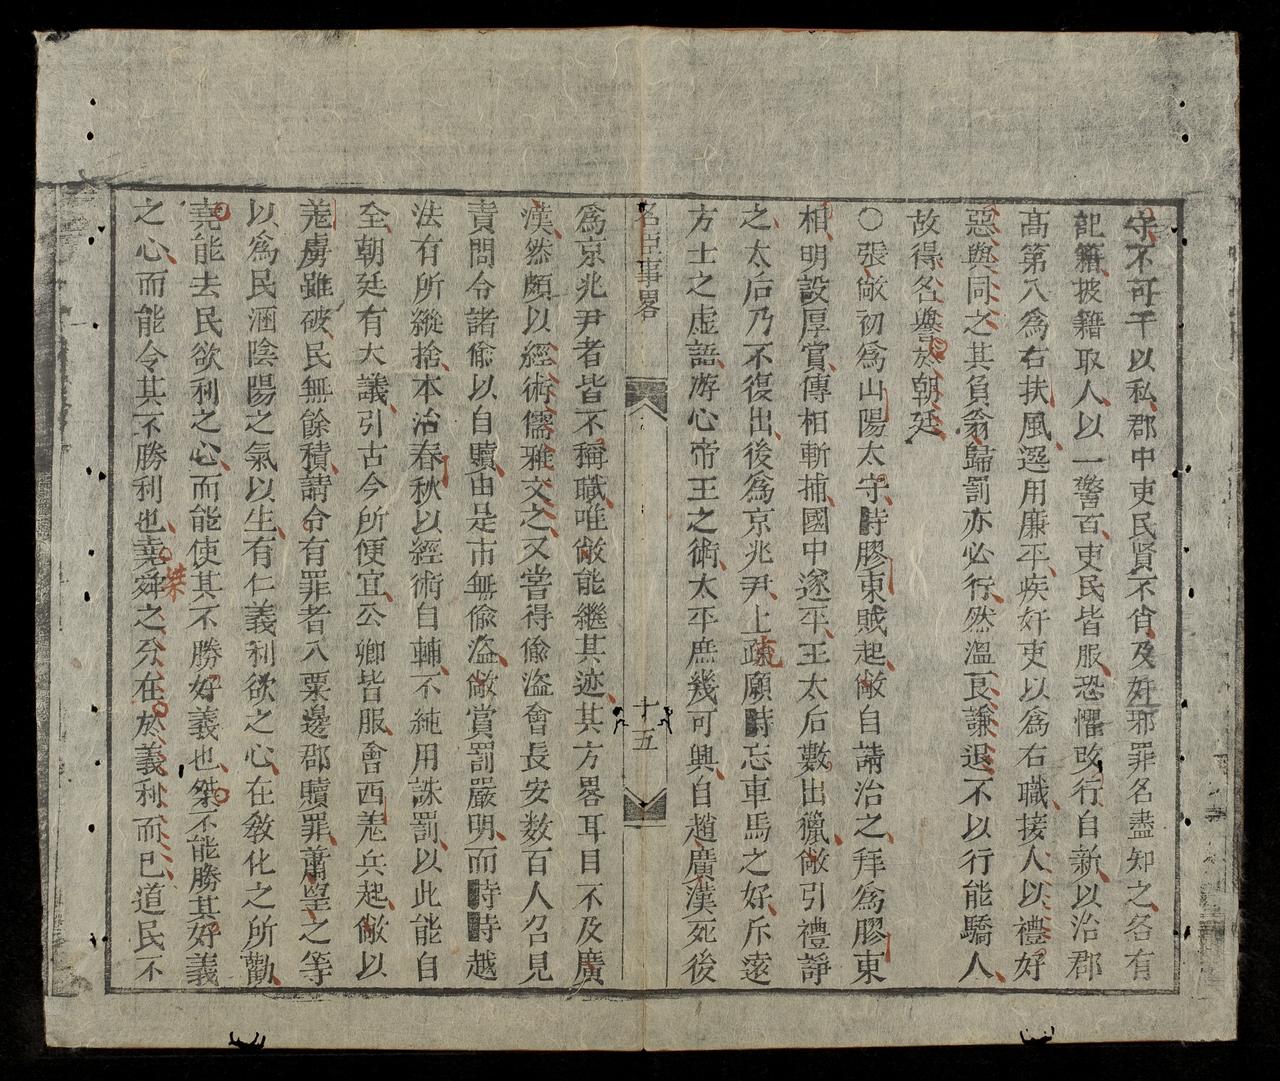 守不可干以私郡中吏民賢不肖及奸邪罪名盡知之各有
記籍披籍取人以一警百吏民皆服恐懼改行自新以治郡
高第入為右扶風選用廉平疾奸吏以為右職接人以禮好
惡與同之其負翁歸罰亦必行然溫良謙退不以行能驕人
故得名譽於朝廷
○張敞初為山陽太守時膠東賊起敞自請治之拜為膠東
相明設厚賞傳相斬捕國中遂平王太后數出獵敞引禮諍
之太后乃不復出後為京兆尹上疏願時忘車馬之好斥遠
方士之虛語游心帝王之術太平庶幾可興自趙廣漢死後
名臣事畧
十五
為京兆尹者皆不稱職唯敞能繼其迹其方畧耳目不及廣
漢然頗以經術儒雅文之又嘗得偷盜會長安数百人召見
責問令諸偷以自贖由是市無偷盜敞賞罰嚴明而時時越
法有所縱捨本治春秋以經術自輔不純用誅罰以此能自
全朝廷有大議引古今所便宜公卿皆服會西羌兵起敞以
羌虜雖破民無餘積請令有罪者入粟邊郡贖罪蕭望之等
以為民涵陰陽之氣以生有仁義利欲之心在敎化之所勸
堯能去民欲利之心而能使其不勝好義也桀不能勝其好義
之心而能令其不勝利也堯舜之分在於義利而已道民不
桀